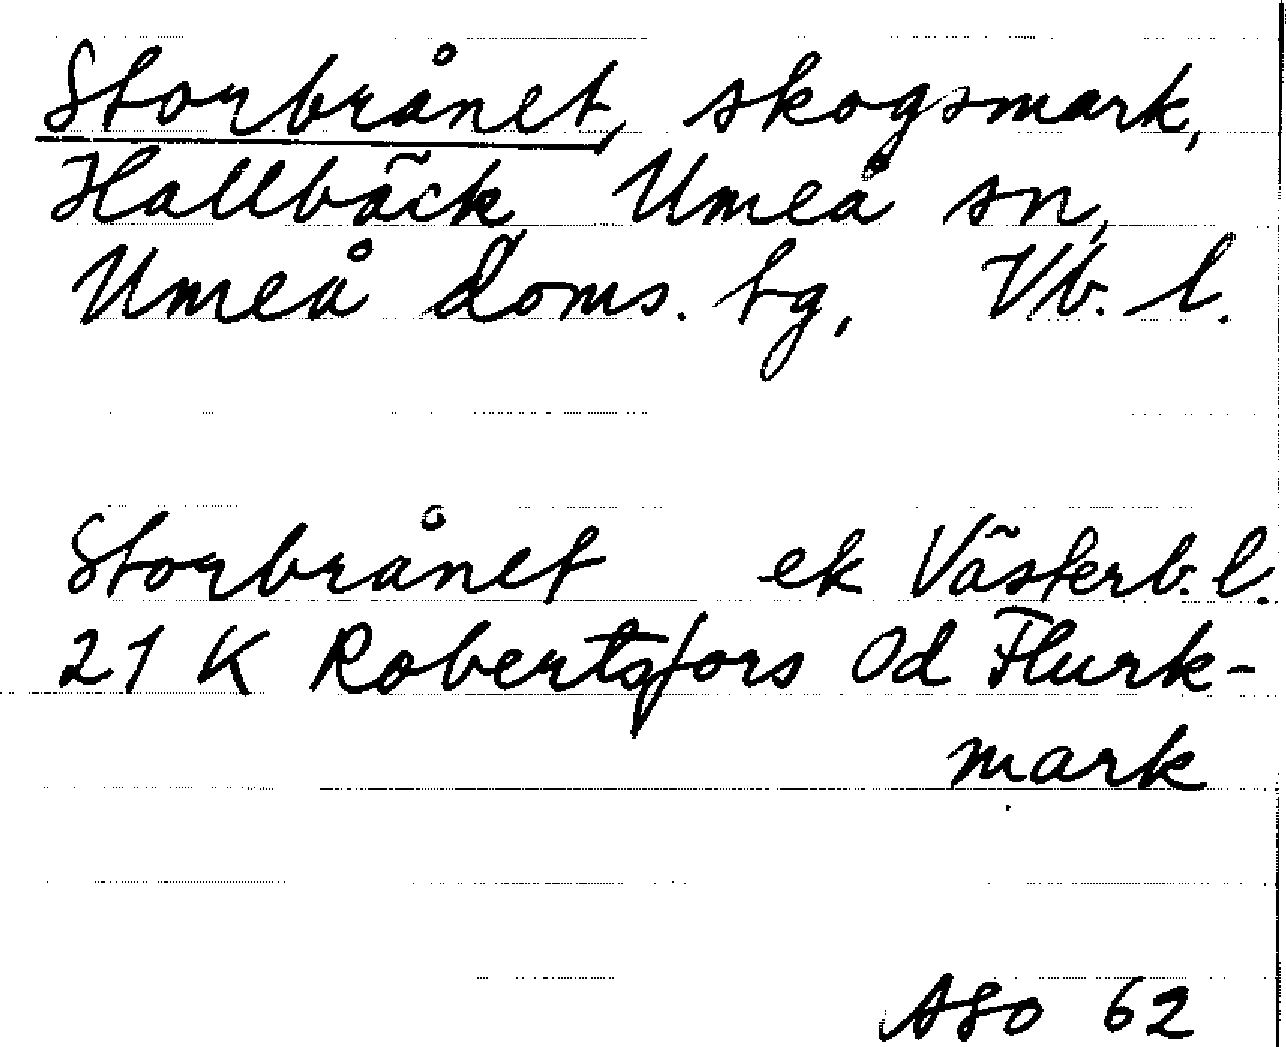 Storbrånet, skogsmark,
Hallbäck Umeå sn,
Umeå doms. tg, Vb. l.
Storbrånet ek Västerb. l.
21 K Robertsfors 0d Flurk-
mark
ASO 62